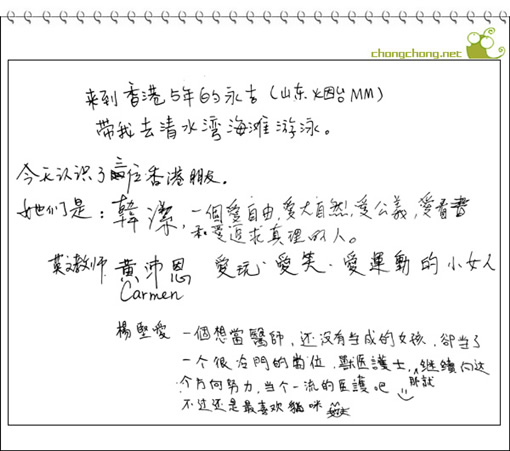 chongchong.net
来到香港5年的永吉 (山东烟台MM)
带我去清水湾海滩游泳。
今天认识了三位香港朋友。
她们是：韓潔，一個愛自由,愛大自然,愛公義,愛看書
和愛追求真理的人。
英文教师 黄沛恩 愛玩·愛笑·愛運動的小女人
Carmen
楊堅愛 一個想當醫師，还没有当成的女孩，卻当了
一个很冷門的崗位，獸医護士,继续向这
个方向努力，当个一流的医護吧
不过还是最喜欢貓咪